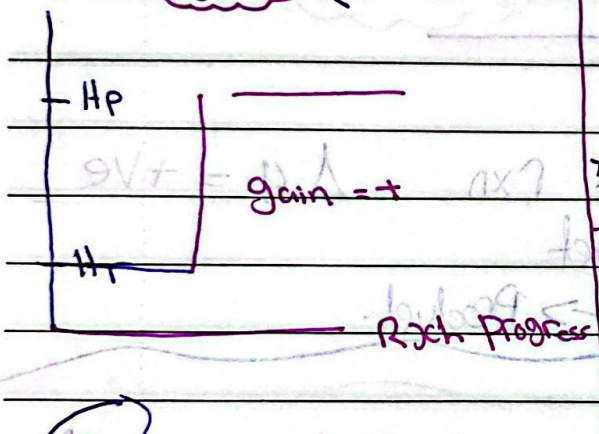 Hp
gain = +
Hr
Rxn Progress